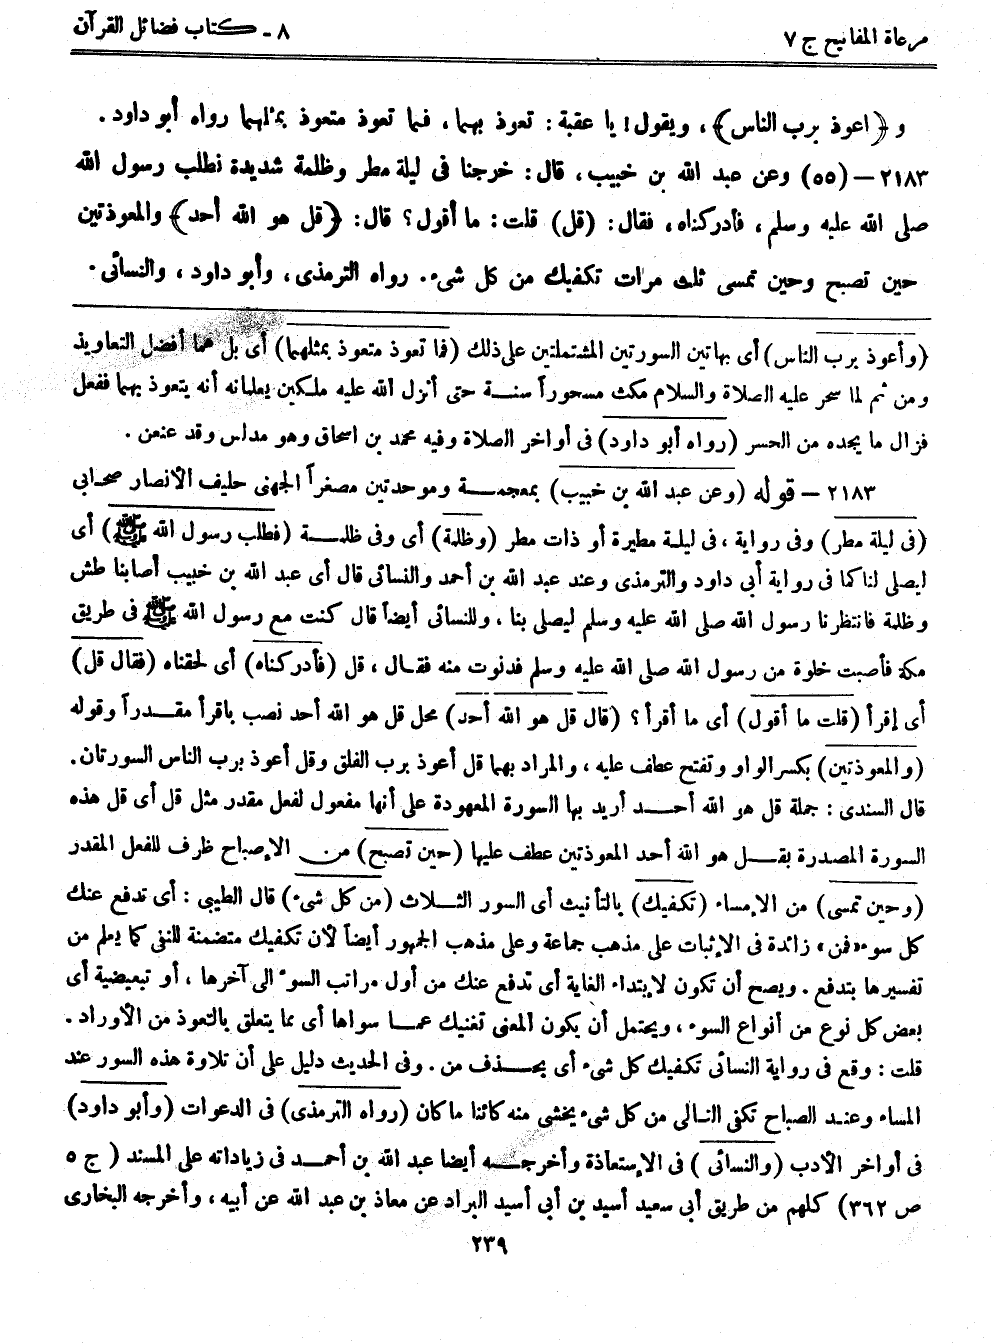 مرعاة المفاتيح ج ٧
٨ - كتاب فضائل القرآن
و ﴿اعوذ برب الناس﴾، ويقول! يا عقبة: تعوذ بهما، فما تعوذ متعوذ بمثلهما رواه أبو داود.
٢١٨٣ – (٥٥) وعن عبد الله بن خبيب، قال: خرجنا فى ليلة مطر وظلمة شديدة نطلب رسول الله
صلى الله عليه وسلم، فأدركناه، فقال: (قل) قلت: ما أقول؟ قال: ﴿قل هو الله أحد﴾ والمعوذتين
حين تصبح وحين تمسى ثلث مرات تكفيك من كل شىء. رواه الترمذى، وأبو داود، والنسائى.
(وأعوذ برب الناس) أى بهاتين السورتين المشتملتين على ذلك (فما تعوذ متعوذ بمثلهما) أى بل هما أفضل التعاويذ
ومن ثم لما سحر عليه الصلاة والسلام مكث مسحوراً سنة حتى أنزل الله عليه ملكين يعلمانه أنه يتعوذ بهما ففعل
فزال ما يجده من الحسر (رواه أبو داود) فى أواخر الصلاة وفيه محمد بن اسحاق وهو مدلس وقد عنعن.
٢١٨٣ – قوله (وعن عبد الله بن خبيب) بمعجمة وموحدتين مصغراً الجهنى حليف الأنصار صحابى
(فى ليلة مطر) وفى رواية، فى ليلة مطيرة أو ذات مطر (وظلمة) أى وفى ظلمة (فطلب رسول الله ﷺ) أى
ليصلى لنا كما فى رواية أبى داود والترمذى وعند عبد الله بن أحمد والنسائى قال أى عبد الله بن خبيب أصابنا طش
وظلمة فانتظرنا رسول الله صلى الله عليه وسلم ليصلى بنا، وللنسائى أيضاً قال كنت مع رسول الله ﷺ فى طريق
مكة فأصبت خلوة من رسول الله صلى الله عليه وسلم فدنوت منه فقال، قل (فأدركناه) أى لحقناه (فقال قل)
أى إقرأ (قلت ما أقول) أى ما أقرأ؟ (قال قل هو الله أحد) محل قل هو الله أحد نصب باقرأ مقدراً وقوله
(والمعوذتين) بكسر الواو وتفتح عطف عليه، والمراد بهما قل أعوذ برب الفلق وقل أعوذ برب الناس السورتان.
قال السندى: جملة قل هو الله أحد أريد بها السورة المعهودة على أنها مفعول لفعل مقدر مثل قل أى قل هذه
السورة المصدرة بقل هو الله أحد المعوذتين عطف عليها (حين تصبح) من الإصباح ظرف للفعل المقدر
(وحين تمسى) من الإمساء (تكفيك) بالتأنيث أى السور الثلاث (من كل شىء) قال الطيبى: أى تدفع عنك
كل سوء «فمن» زائدة فى الإثبات على مذهب جماعة وعلى مذهب الجمهور أيضاً لأن تكفيك متضمنة للنفى كما يعلم من
تفسيرها بتدفع. ويصح أن تكون لابتداء الغاية أى تدفع عنك من أول مراتب السوء الى آخرها، أو تبعيضية أى
بعض كل نوع من أنواع السوء، ويحتمل أن يكون المعنى تغنيك عما سواها أى مما يتعلق بالتعوذ من الأوراد.
قلت: وقع فى رواية النسائى تكفيك كل شىء أى بحذف من. وفى الحديث دليل على أن تلاوة هذه السور عند
المساء وعند الصباح تكفى التالى من كل شىء يخشى منه كائنا ما كان (رواه الترمذى) فى الدعوات (وأبو داود)
فى أواخر الأدب (والنسائى) فى الإستعاذة وأخرجه أيضا عبد الله بن أحمد فى زياداته على المسند (ج ٥
ص ٣٦٢) كلهم من طريق أبى سعيد أسيد بن أبى أسيد البراد عن معاذ بن عبد الله عن أبيه، وأخرجه البخارى
٢٣٩